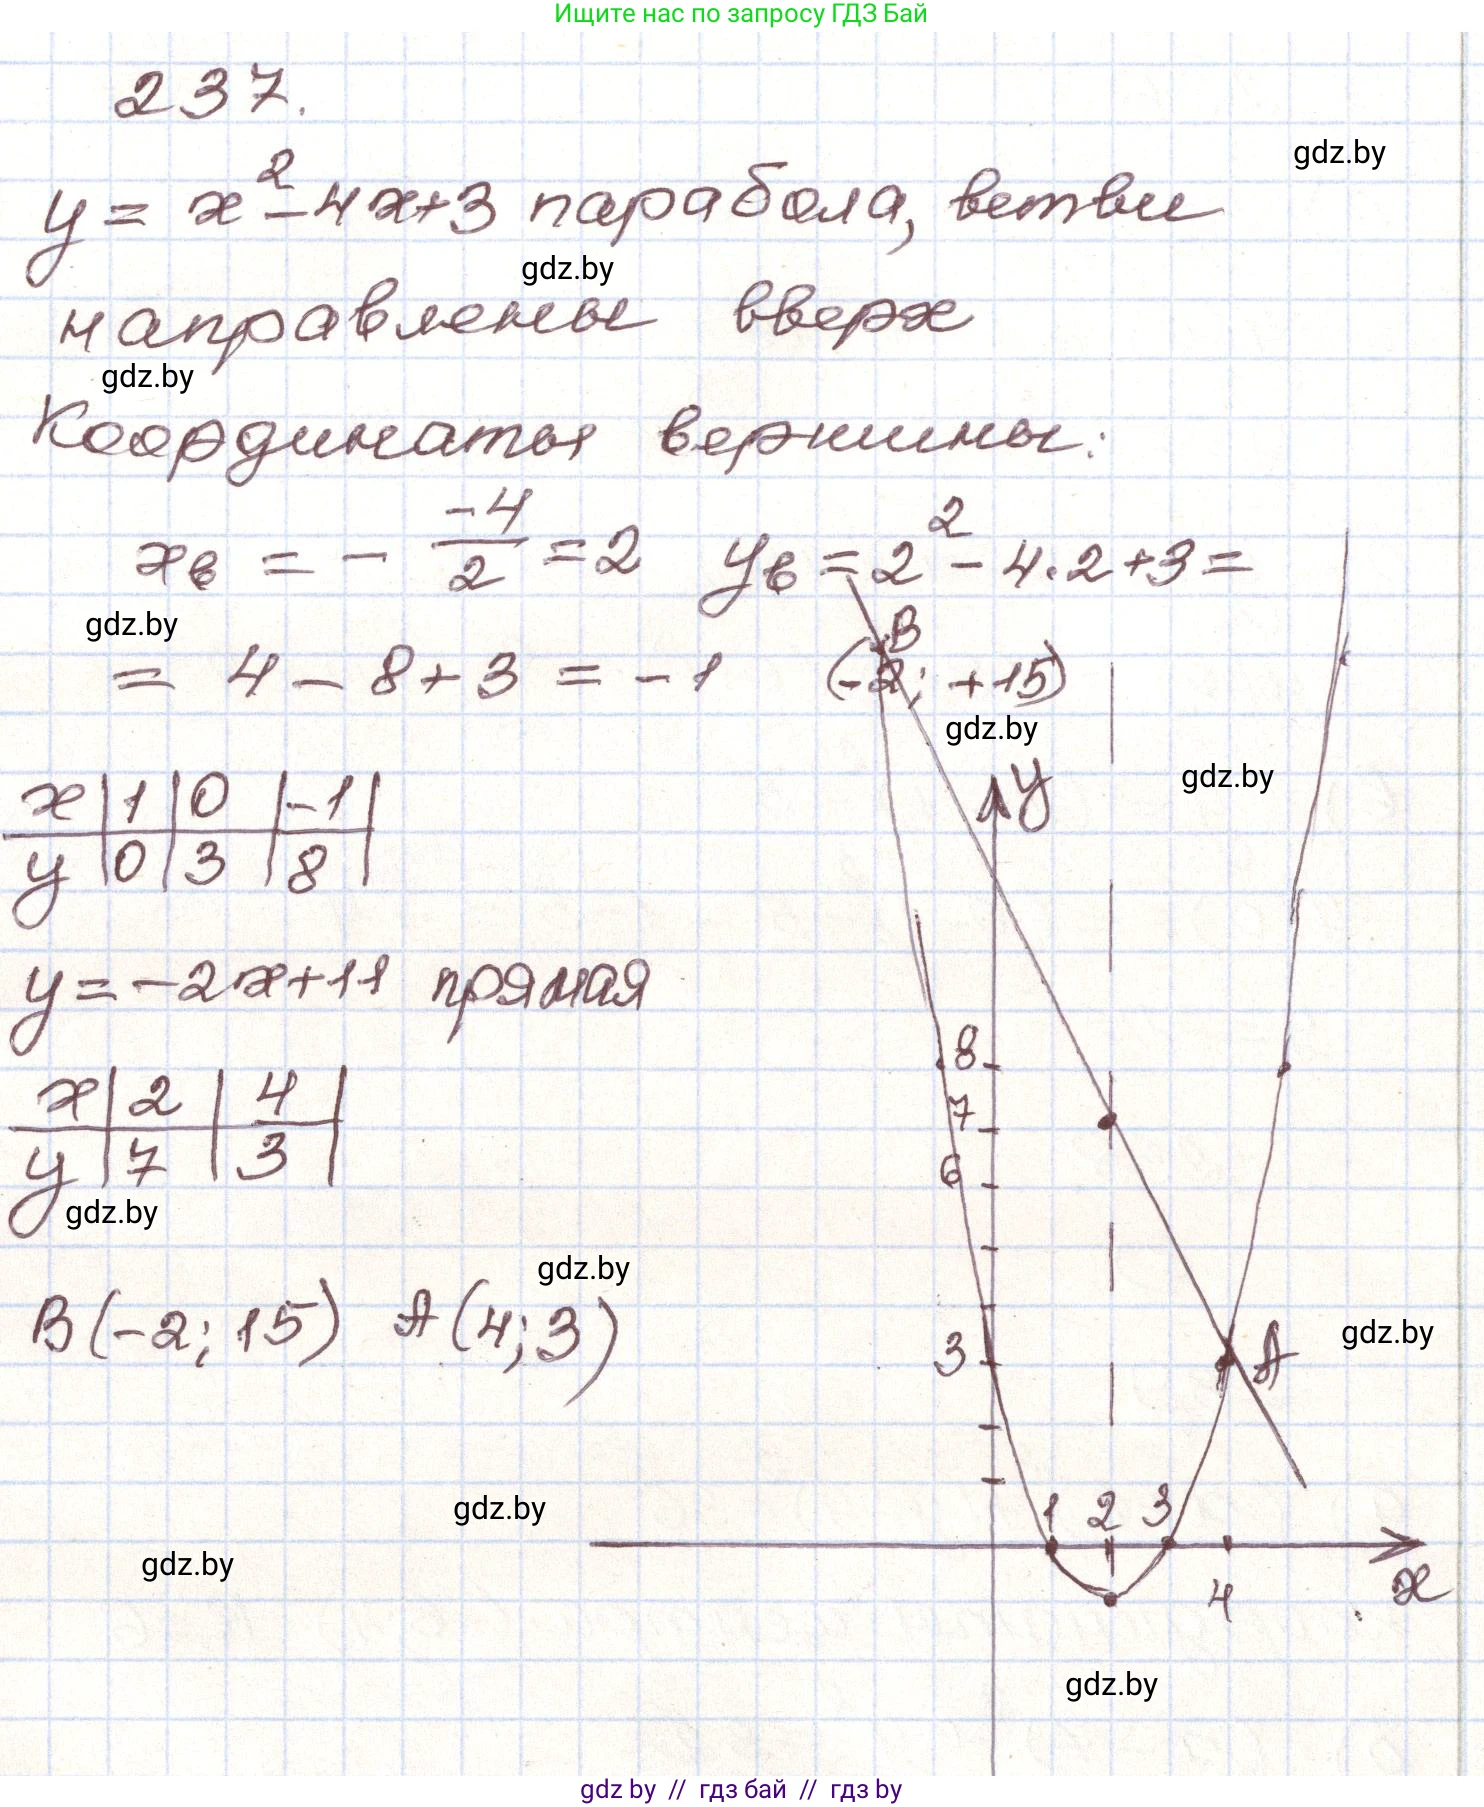 Ищите нас по запросу ГДЗ Бай
237.
gdz.by
y = x² - 4x + 3 парабола, ветви
gdz.by
направлены вверх
gdz.by
Координаты вершины:
xв = - -4/2 = 2 yв = 2² - 4·2 + 3 =
gdz.by
B
= 4 - 8 + 3 = -1 (-2; +15)
gdz.by
gdz.by
y
x | 1 | 0 | -1 |
y | 0 | 3 | 8 |
y = -2x + 11 прямая
8
7
6
x | 2 | 4 |
y | 7 | 3 |
gdz.by
gdz.by
B(-2; 15) A(4; 3)
gdz.by
3 A
gdz.by
1 2 3
gdz.by
4 x
gdz.by
gdz by // гдз бай // гдз by